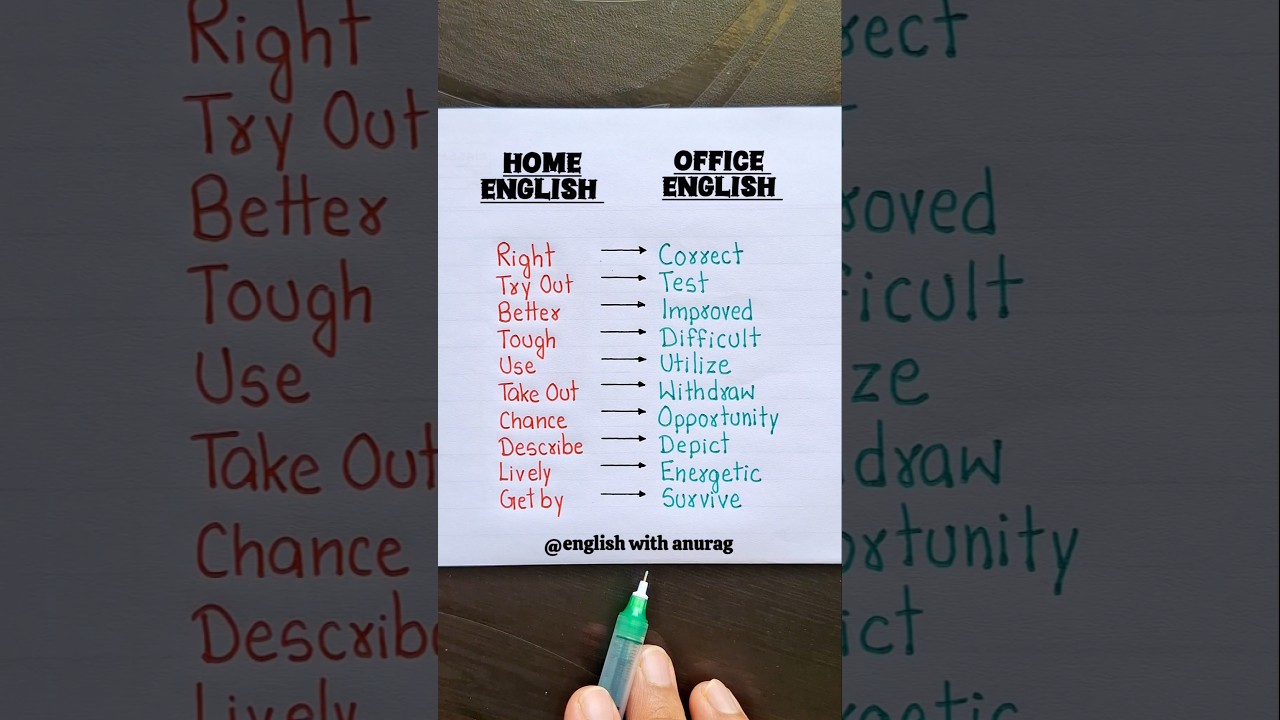 HOME ENGLISH OFFICE ENGLISH
Right → Correct
Try Out → Test
Better → Improved
Tough → Difficult
Use → Utilize
Take Out → Withdraw
Chance → Opportunity
Describe → Depict
Lively → Energetic
Get by → Survive
@english with anurag